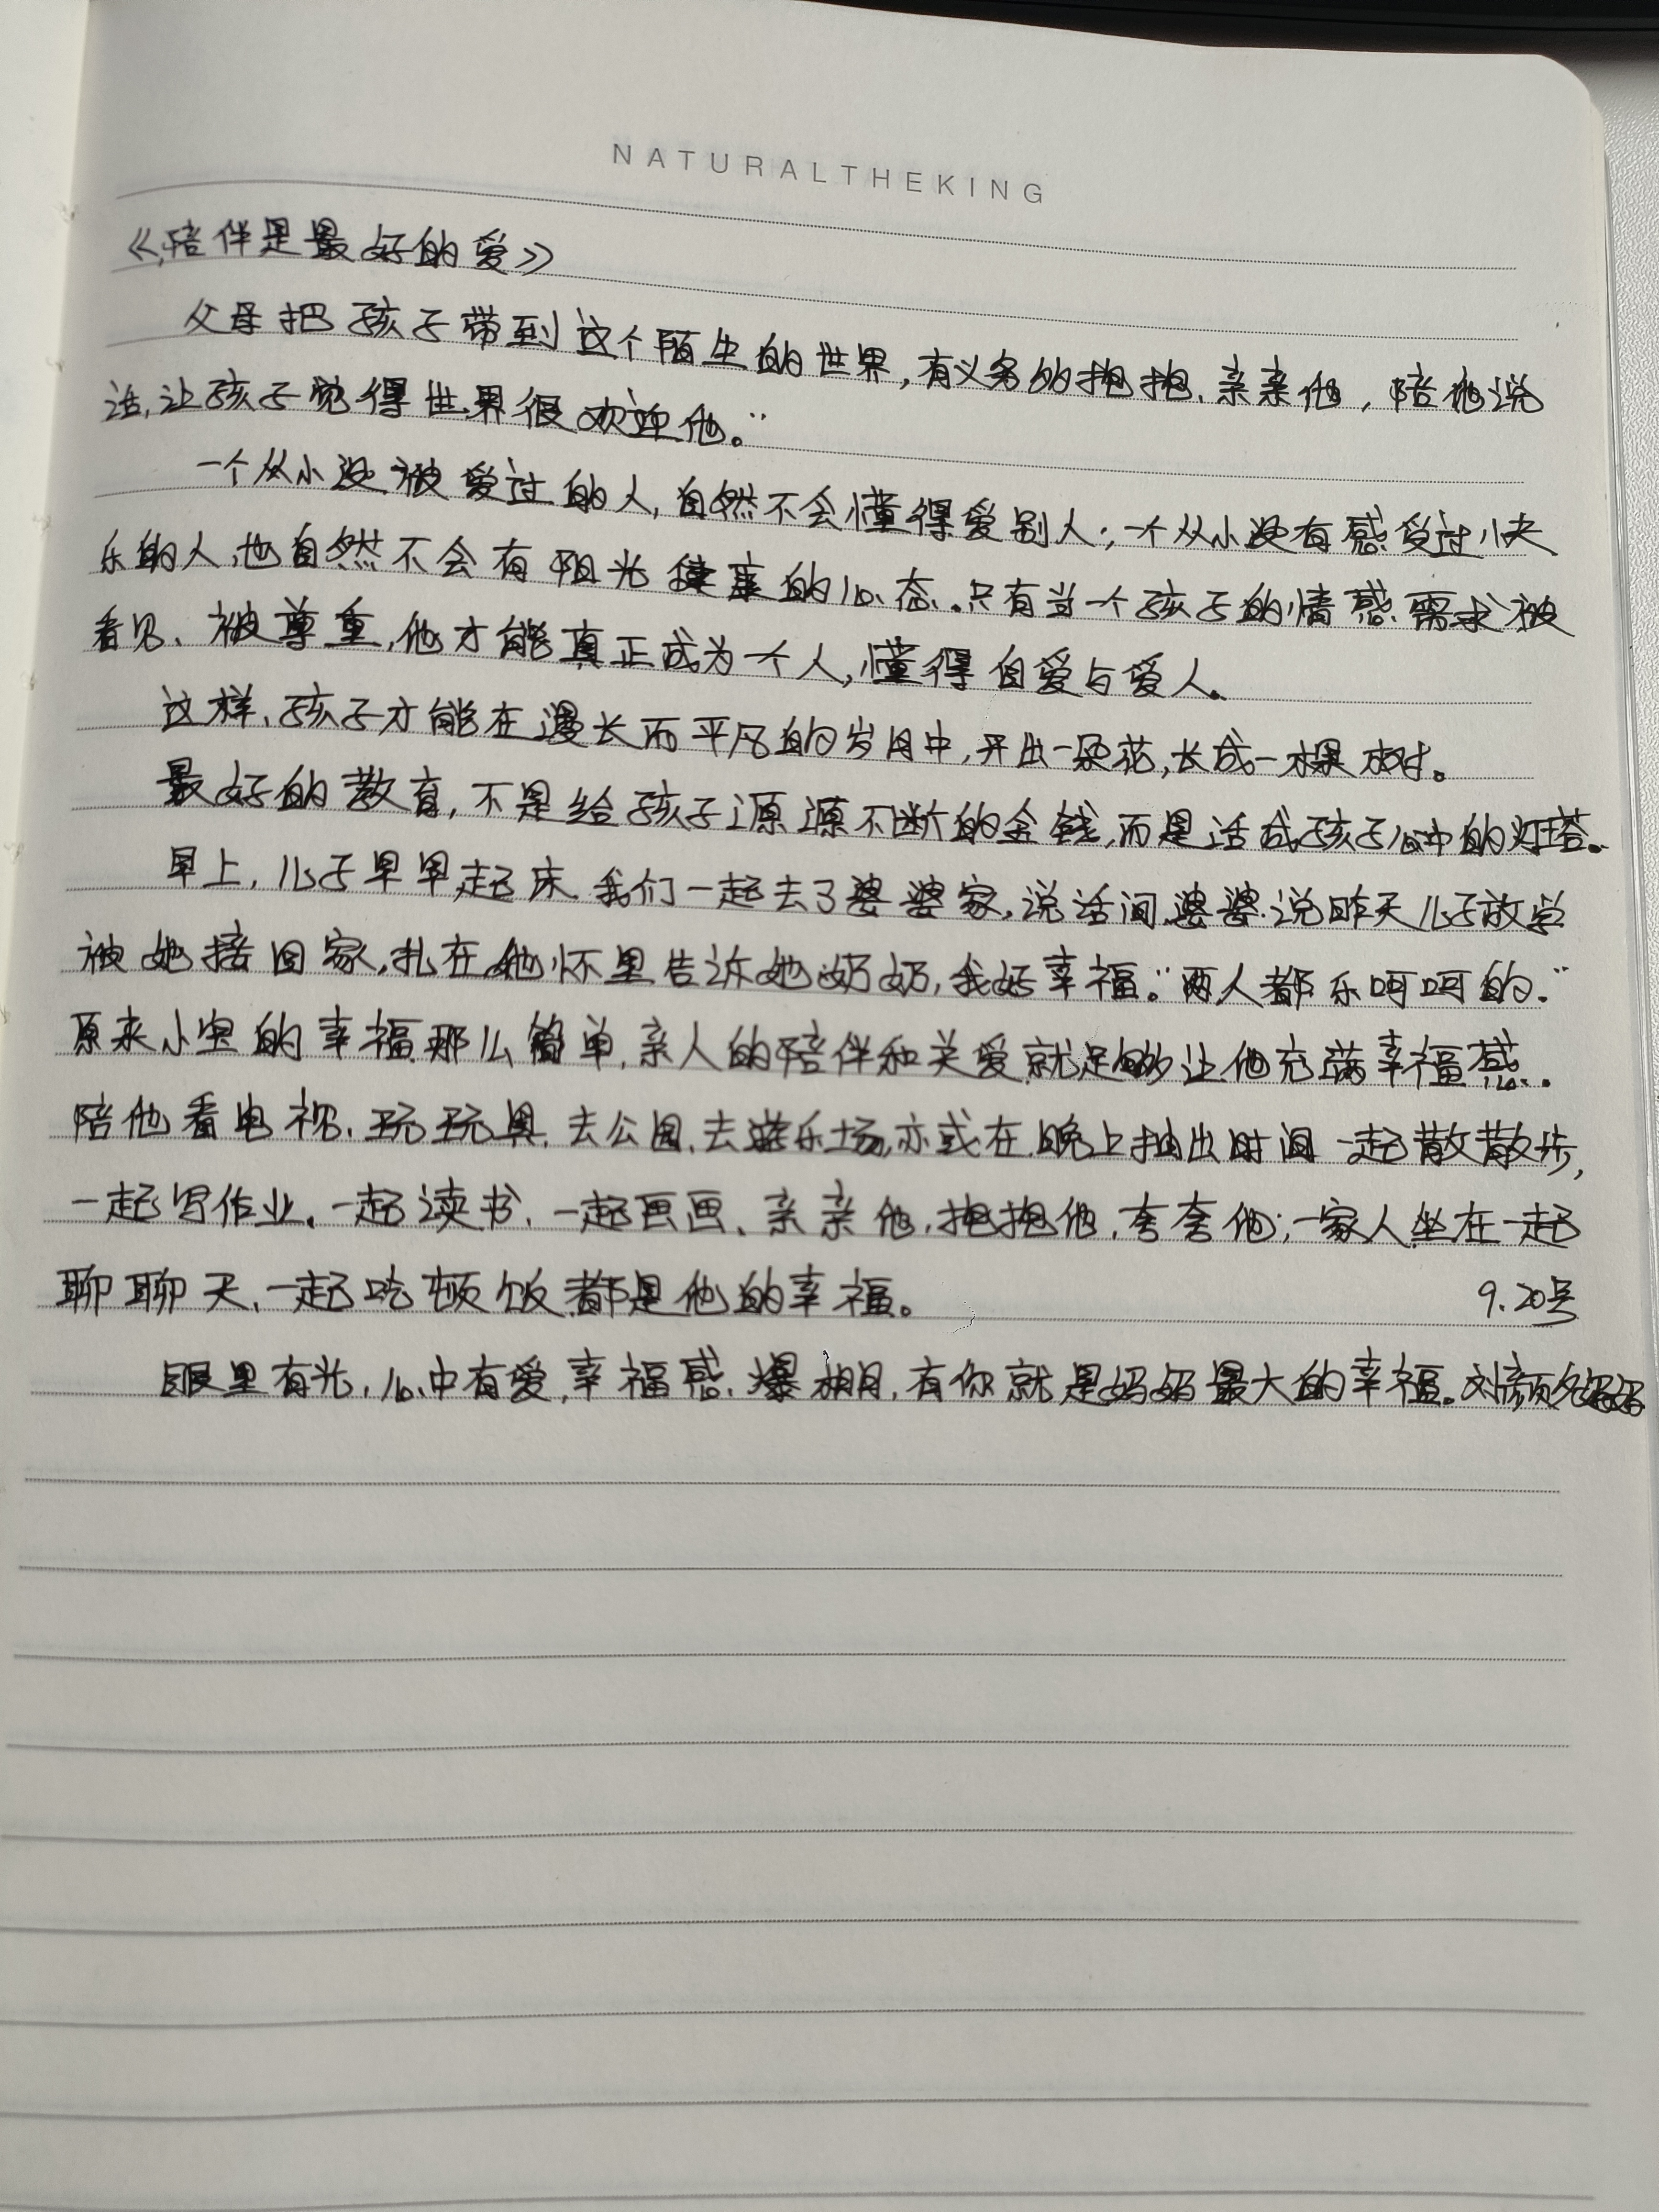 NATURALTHEKING
《陪伴是最好的爱》
父母把孩子带到这个陌生的世界,有义务的抱抱、亲亲他,陪他说
话,让孩子觉得世界很欢迎他。"
一个从小没被爱过的人,自然不会懂得爱别人;一个从小没有感受过快
乐的人,也自然不会有阳光健康的心态.只有当一个孩子的情感需求被
看见、被尊重,他才能真正成为一个人,懂得自爱与爱人。
这样,孩子才能在漫长而平凡的岁月中,开出一朵花,长成一棵树。
最好的教育,不是给孩子源源不断的金钱,而是活成孩子心中的灯塔。
早上,儿子早早起床.我们一起去了婆婆家,说话间,婆婆说昨天儿子放学
被她接回家,扎在她怀里告诉她奶奶,我好幸福。"两人都乐呵呵的."
原来小宝的幸福那么简单,亲人的陪伴和关爱就足够让他充满幸福感.
陪他看电视、玩玩具、去公园、去游乐场,亦或在晚上抽出时间一起散散步,
一起写作业、一起读书、一起画画、亲亲他,抱抱他,夸夸他;一家人坐在一起
聊聊天、一起吃顿饭都是他的幸福。 9.20号
眼里有光,心中有爱,幸福感爆棚,有你就是妈妈最大的幸福。刘颜名妈妈